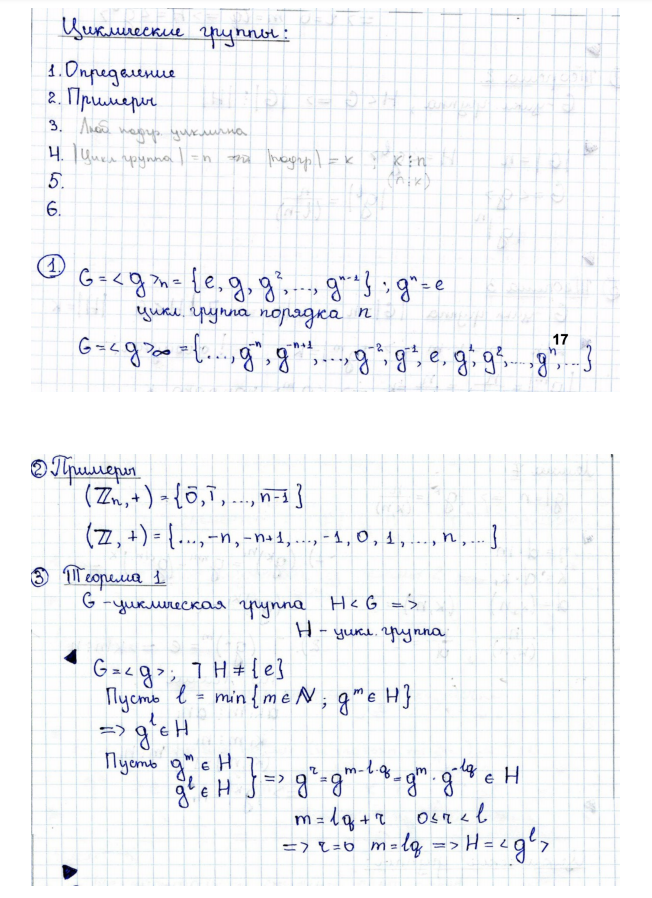 Циклические группы:
1. Определение
2. Примеры
3. Люб подгр циклична
4. |Цикл группа| = n ⇒ |подгр| = k ; k ⋮ n
(n ⋮ k)
5.
6.
① G = <g>ₙ = {e, g, g², ..., gⁿ⁻¹} ; gⁿ = e
цикл. группа порядка n
17
G = <g>∞ = {..., g⁻ⁿ, g⁻ⁿ⁺¹, ..., g⁻², g⁻¹, e, g¹, g², ..., gⁿ, ...}
② Примеры
(ℤₙ, +) = {0̅, 1̅, ..., n̅-̅1̅}
(ℤ, +) = {..., -n, -n+1, ..., -1, 0, 1, ..., n, ...}
③ Теорема 1
G - циклическая группа H < G =>
H - цикл. группа
◀ G = <g> ; ⅂ H ≠ {e}
Пусть l = min{m ∈ ℕ ; gᵐ ∈ H}
=> gˡ ∈ H
Пусть gᵐ ∈ H
gˡ ∈ H } => gʳ = gᵐ⁻ˡ·q = gᵐ · g⁻ˡq ∈ H
m = lq + r 0 ≤ r < l
=> r = 0 m = lq => H = <gˡ>
▶